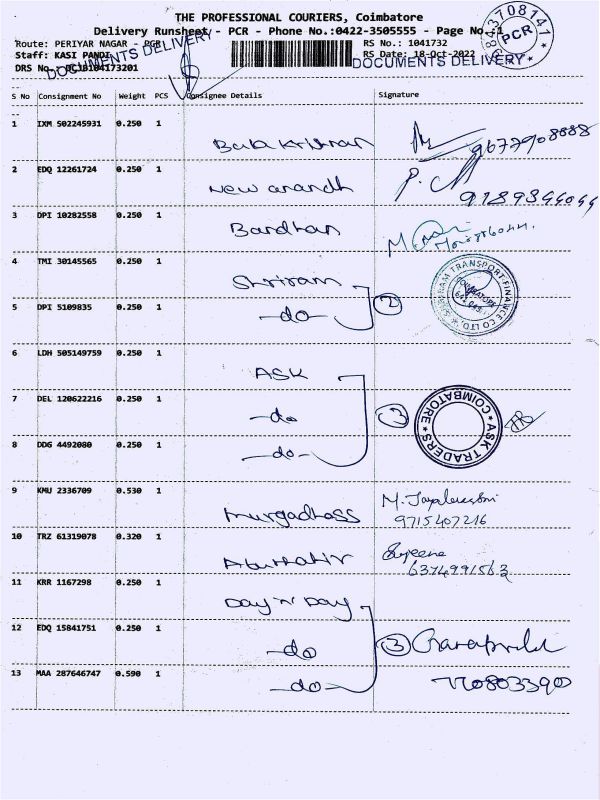 THE PROFESSIONAL COURIERS, Coimbatore
Delivery Runsheet - PCR - Phone No.:0422-3505555 - Page No.
Route: PERIYAR NAGAR -
RS No.: 1041732
Staff: KASI PANDI
RS Date: 18-Oct-2022
DOCUMENTS DELIVERY
DOCUMENTS DELIVERY
PCR
DRS No.
S No Consignment No Weight PCS Consignee Details Signature
1 IXM 502245931 0.250 1 Bala Krishnan 9677908888
2 EDQ 12261724 0.250 1 New anandh
3 DPI 10282558 0.250 1 Bardhan
4 TMI 30145565 0.250 1 Shriram
SHRIRAM TRANSPORT FINANCE CO LTD. COIMBATORE
5 DPI 5109835 0.250 1 -do- 2
6 LDH 505149759 0.250 1 ASK
7 DEL 120622216 0.250 1 -do 3
ASK TRADERS COIMBATORE
8 DDG 4492080 0.250 1 -do-
9 KMU 2336709 0.530 1 Murgadhass
9715407216
10 TRZ 61319078 0.320 1
6374991563
11 KRR 1167298 0.250 1 Day 'n' Day
12 EDQ 15841751 0.250 1 -do 3
13 MAA 287646747 0.590 1 -do- 7708033900